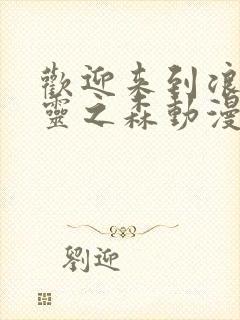 歡迎来到浪
靈之森動漫
劉迎